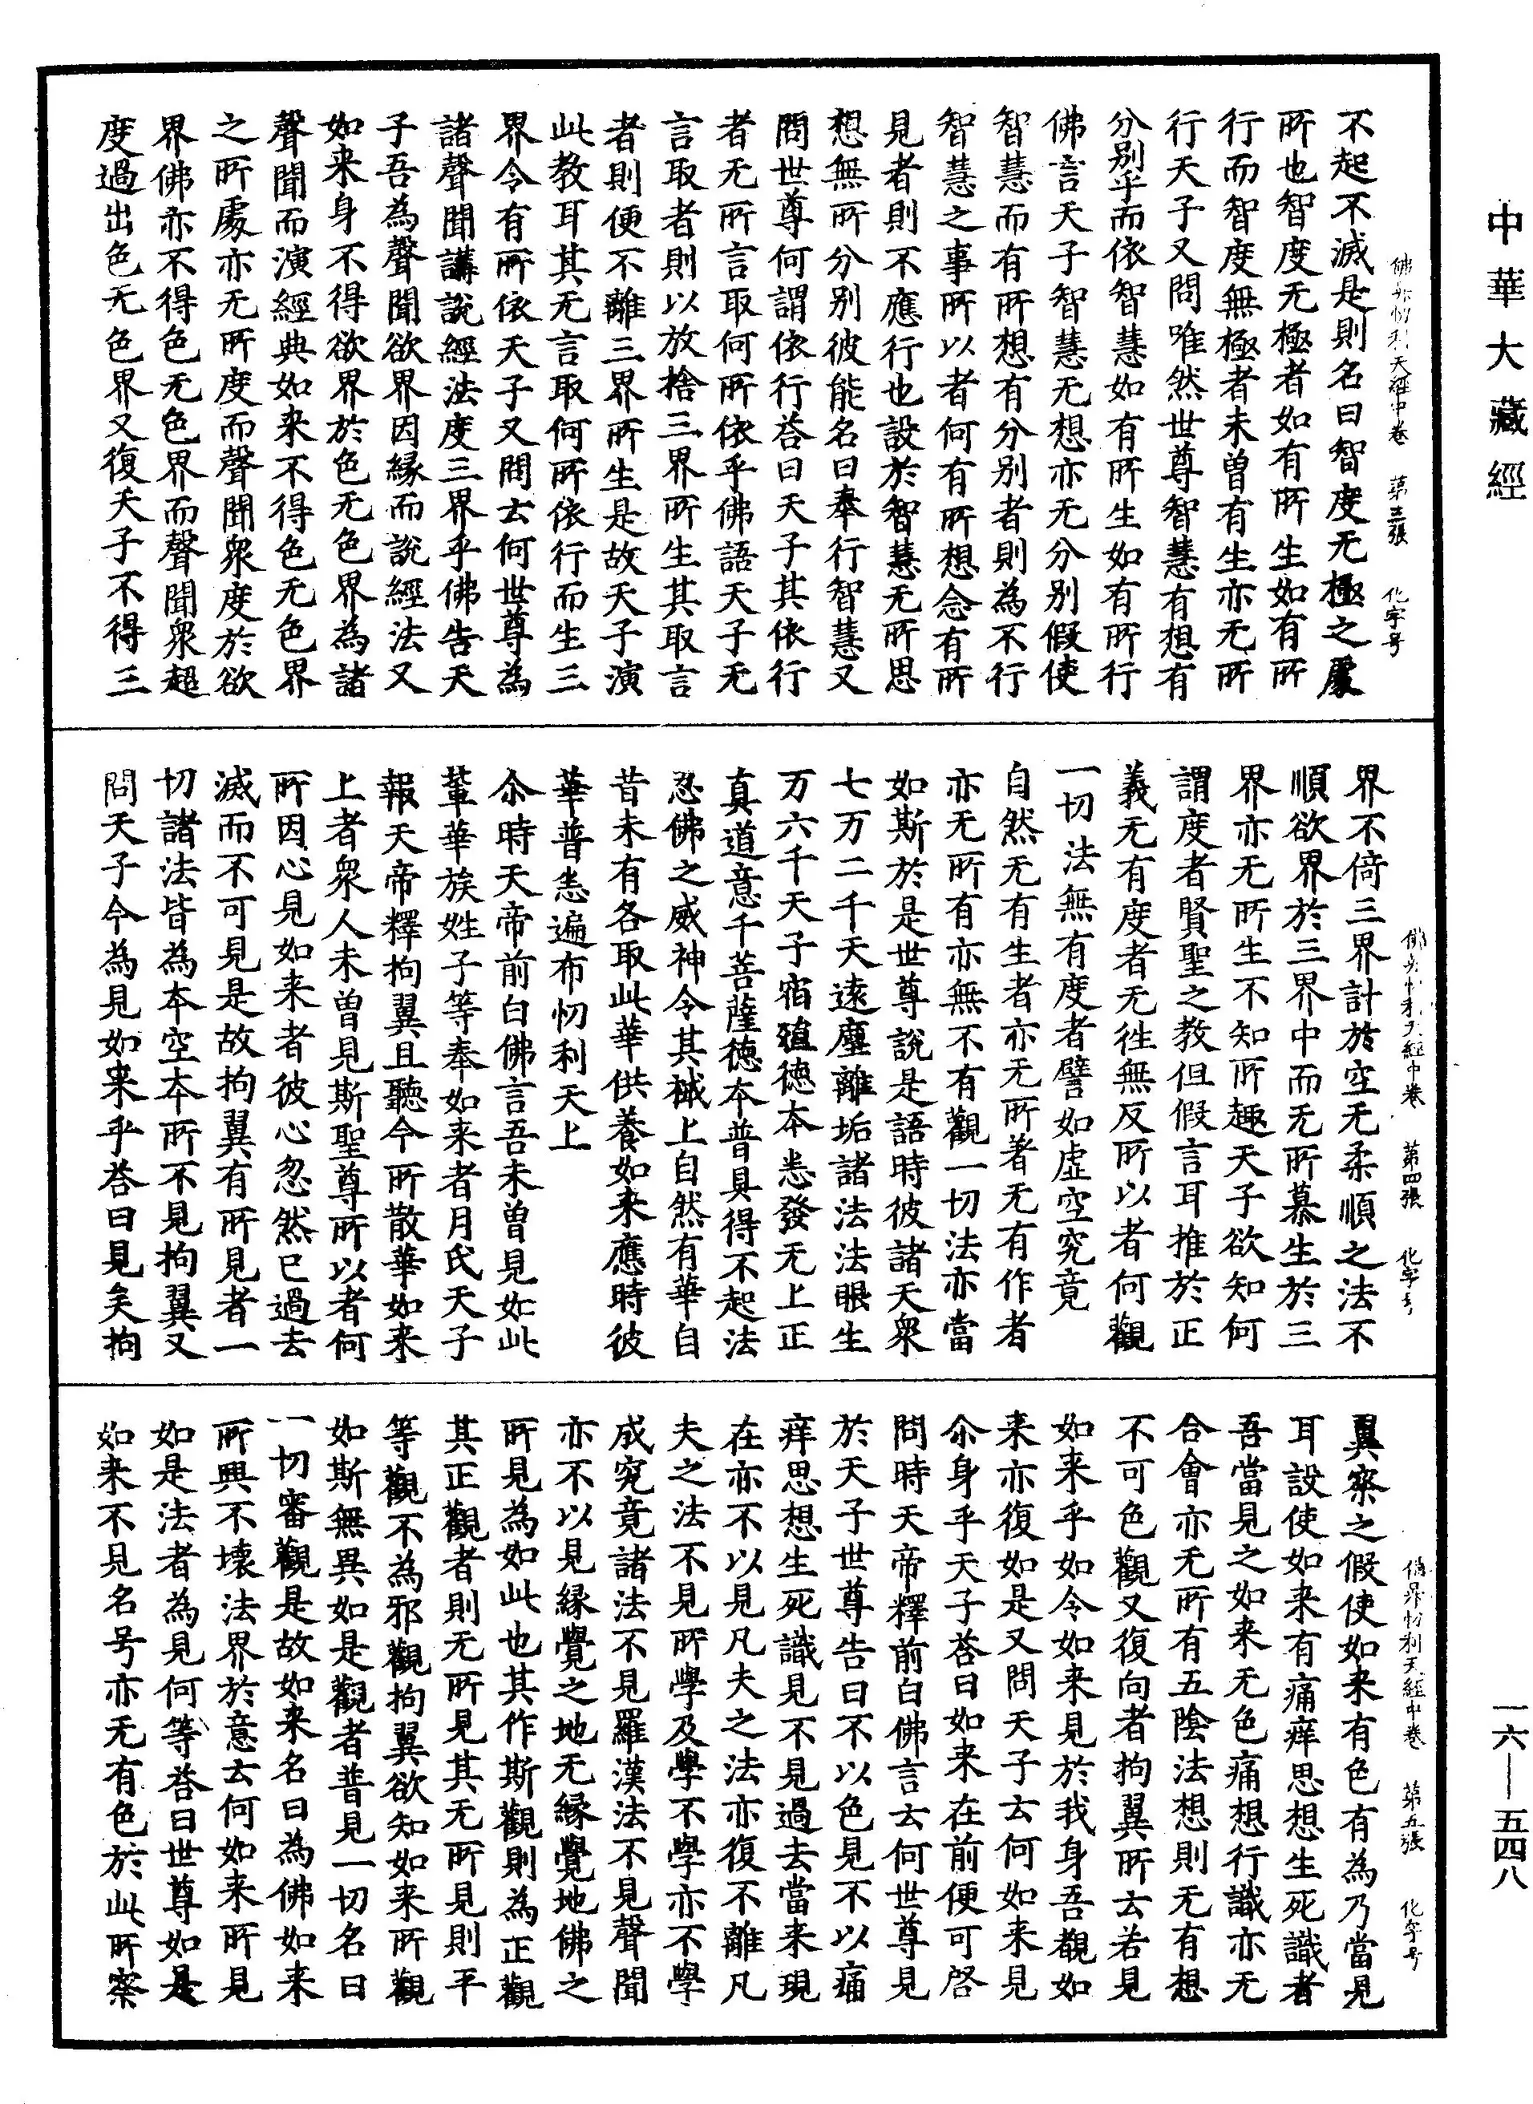 中華大藏經
佛昇忉利天經中卷 第三張 化字号
不起不滅是則名曰智度无極之處
所也智度无極者如有所生如有所
行而智度無極者未曽有生亦无所
行天子又問唯然世尊智慧有想有
分别乎而依智慧如有所生如有所行
佛言天子智慧无想亦无分别假使
智慧而有所想有分别者則為不行
智慧之事所以者何有所想念有所
見者則不應行也設於智慧无所思
想無所分别彼能名曰奉行智慧又
問世尊何謂依行荅曰天子其依行
者无所言取何所依乎佛語天子无
言取者則以放捨三界所生其取言
者則便不離三界所生是故天子演
此教耳其无言取何所依行而生三
界令有所依天子又問云何世尊為
諸聲聞講說經法度三界乎佛告天
子吾為聲聞欲界因緣而說經法又
如来身不得欲界於色无色界為諸
聲聞而演經典如来不得色无色界
之所處亦无所度而聲聞衆度於欲
界佛亦不得色无色界而聲聞衆超
度過出色无色界又復天子不得三
佛昇忉利天經中卷 第四張 化字号
界不倚三界計於空无柔順之法不
順欲界於三界中而无所慕生於三
界亦无所生不知所趣天子欲知何
謂度者賢聖之教但假言耳推於正
義无有度者无徃無反所以者何觀
一切法無有度者譬如虛空究竟
自然无有生者亦无所著无有作者
亦无所有亦無不有觀一切法亦當
如斯於是世尊說是語時彼諸天衆
七万二千天遠塵離垢諸法法眼生
万六千天子宿殖德本悉發无上正
真道意千菩薩德本普具得不起法
忍佛之威神令其棫上自然有華自
昔未有各取此華供養如来應時彼
華普悉遍布忉利天上
尒時天帝前白佛言吾未曽見如此
輩華族姓子等奉如来者月氏天子
報天帝釋拘翼且聽今所散華如来
上者衆人未曽見斯聖尊所以者何
所因心見如来者彼心忽然已過去
滅而不可見是故拘翼有所見者一
切諸法皆為本空本所不見拘翼又
問天子今為見如来乎荅曰見矣拘
佛昇忉利天經中卷 第五張 化字号
翼察之假使如来有色有為乃當見
耳設使如来有痛痒思想生死識者
吾當見之如来无色痛想行識亦无
合會亦无所有五陰法想則无有想
不可色觀又復向者拘翼所云若見
如来乎如今如来見於我身吾覩如
来亦復如是又問天子云何如来見
尒身乎天子荅曰如来在前便可啓
問時天帝釋前白佛言云何世尊見
於天子世尊告曰不以色見不以痛
痒思想生死識見不見過去當来現
在亦不以見凡夫之法亦復不離凡
夫之法不見所學及學不學亦不學
成究竟諸法不見羅漢法不見聲聞
亦不以見緣覺之地无緣覺地佛之
所見為如此也其作斯觀則為正觀
其正觀者則无所見其无所見則平
等觀不為邪觀拘翼欲知如来所觀
如斯無異如是觀者普見一切名曰
一切審觀是故如来名曰為佛如来
所興不壞法界於意云何如来所見
如是法者為見何等荅曰世尊如是
如来不見名号亦无有色於此所察
一六—五四八